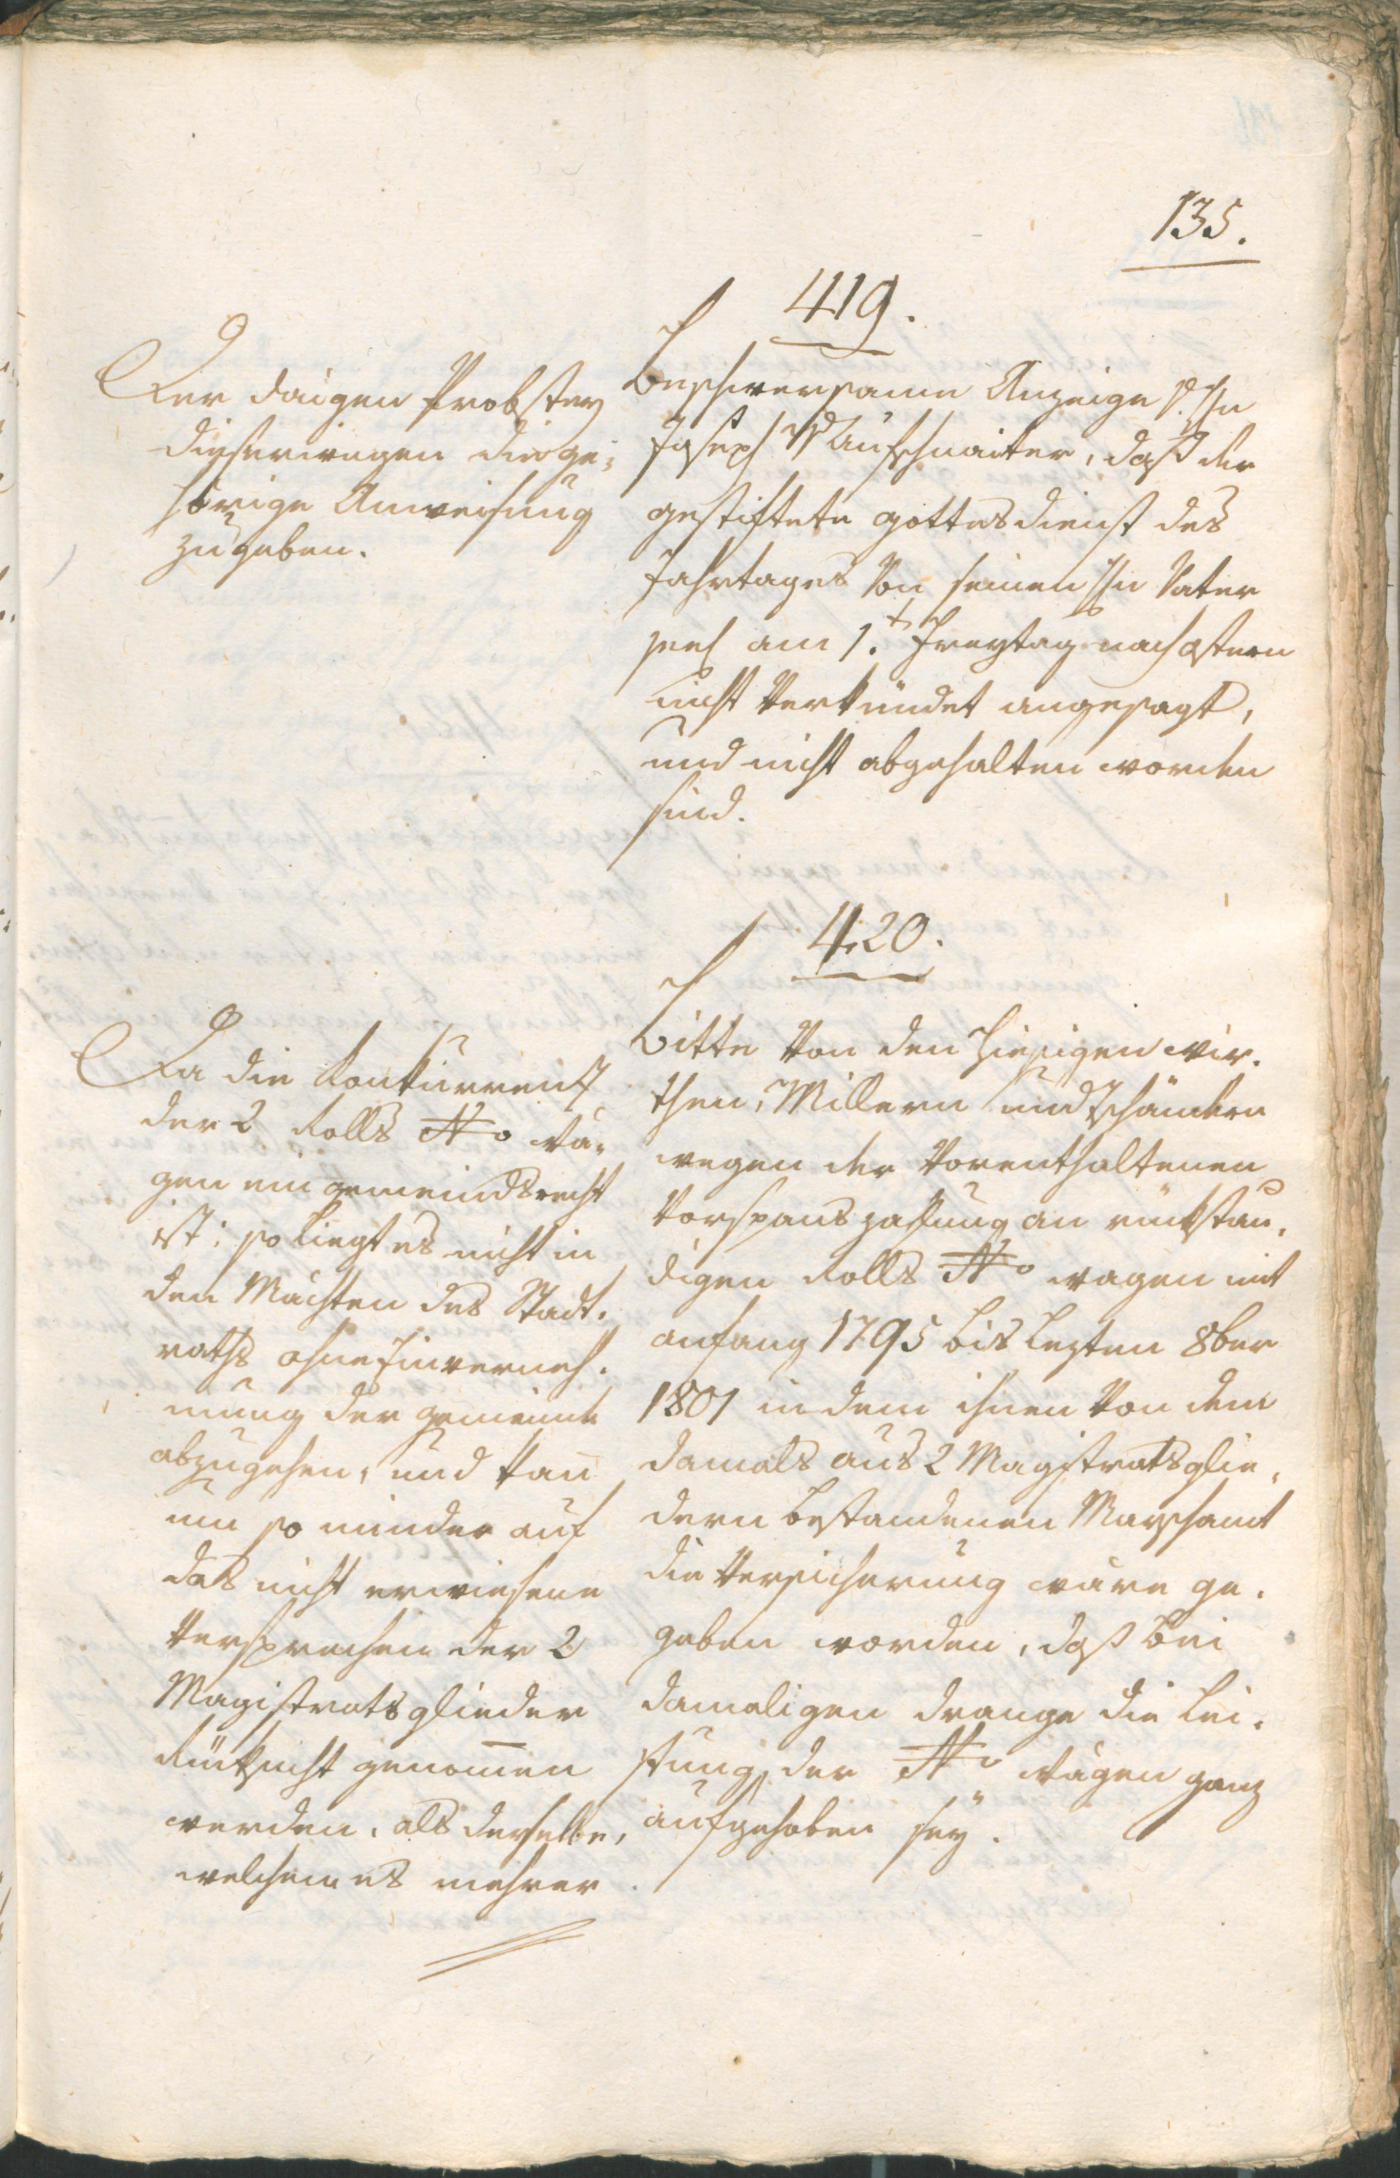 135.
419.
Beschwersamme Anzeige S. Hn
Joseph v Aufschnaiter, daß der
gestiftete Gottesdienst des
Jahrtages von seinen Hn Vater
seel am 1.t Freytag nach Ostern
nicht verkündet angesagt,
und nicht abgehalten worden
sind.
Der daigen Probstey
dießerwegen die ge-
hörige Anweisung
zu geben.
420.
Bitte von den hiesigen Wir-
then, Millern und Schänken
wegen der vorenthaltenen
Vorspanszahlung an rükstän-
digen Rolls No wagen mit
anfang 1795 bis lezten 8ber
1801 in dem ihnen von dem
damals aus 2 Magistratsglie-
dern bestandenen Marschamt
die Versicherung wäre ge-
geben worden, daß bei
damaligen drange die Lei-
stung der No wägen ganz
aufgehoben sey.
Da die Konkurrenz
der 2 Rolls No wä-
gen ein gemeindsrecht
ist: so liegt es nicht in
den Mächten des Stadt-
raths ohne Einverneh-
mung der gemeinde
abzugehen, und kan
um so minder auf
das nicht erwiesene
Versprechen der 2
Magistratsglieder
Rüksicht genomen
werden, als derselbe,
welchem es mehrer